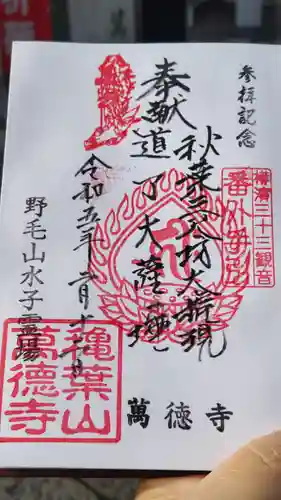 参拝記念
奉献
秋葉三尺坊大権現
道了大薩埵
令和五年二月十六日
野毛山水子霊場
萬徳寺
横濱三十三観音
番外
亀葉山
萬徳寺